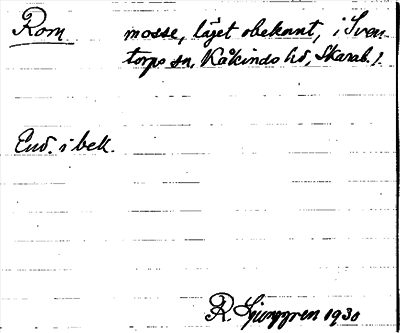 Rom mosse, läget obekant, i Sven-
torps sn, Kåkinds hd, Skarab. l.
End. i bek.
R. Ljunggren 1930